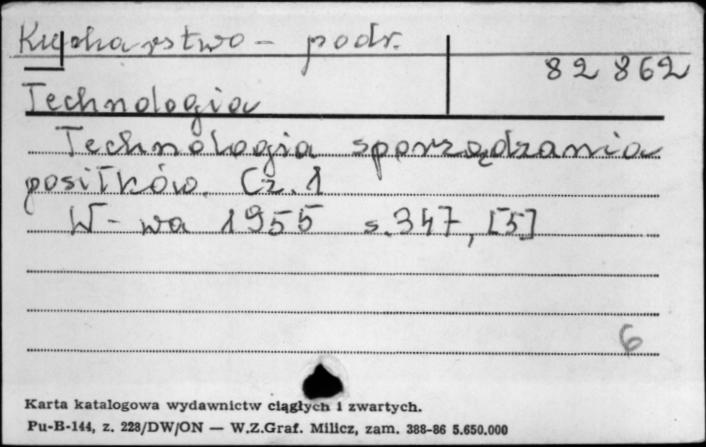 Kucharstwo - podr.
82862
Technologia
Technologia sporządzania
posiłków. Cz. 1
W-wa 1955 s. 347, [5]
6
Karta katalogowa wydawnictw ciągłych i zwartych.
Pu-B-144, z. 228/DW/ON — W.Z.Graf. Milicz, zam. 388-86 5.650.000